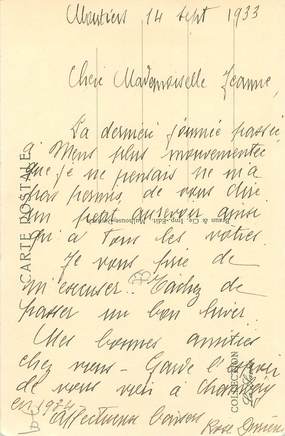 Moutiers 14 Sept 1933
Chère Mademoiselle Jeanne,
La dernière journée passée
à Mens plus mouvementée
que je ne pensais ne m'a
pas permis, de vous dire
un petit aurevoir ainsi
qu'à tous les vôtres.
Je vous prie de
m'excuser. Tâchez de
passer un bon hiver.
Mes bonnes amitiés
chez vous - Garde l'espoir
de vous voir à
en 1934 -
Affectueux baisers
Rose
CARTE POSTALE
COLLECTION